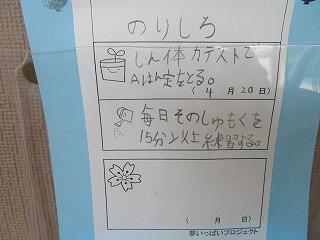 のりしろ
しん体力テストで
Aはん定をとる。
(4月20日)
毎日そのしゅもくを
15分以上練習する。
(月日)
夢いっぱいプロジェクト